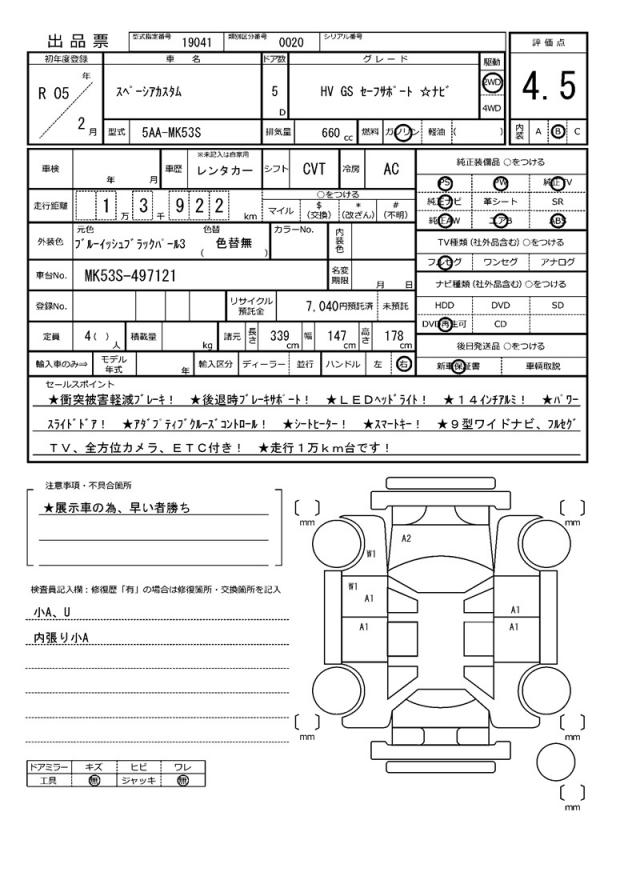 出品票 型式指定番号 19041 類別区分番号 0020 シリアル番号
初年度登録 車名 ドア数 グレード 駆動 評価点
R 05 年 2 月 スペーシアカスタム 5 D HV GS セーフサポート ☆ナビ 2WD 4WD 4.5
型式 5AA-MK53S 排気量 660 cc 燃料 ガソリン 軽油 ( ) 内装 A B C
車検 年 月 車歴 ※未記入は自家用 レンタカー シフト CVT 冷房 AC 純正装備品 ○をつける
PS PW 純正TV
走行距離 1 万 3 千 9 2 2 km ○をつける マイル $ (交換) * (改ざん) # (不明) 純正ナビ 革シート SR
純正AW エアB ABS
外装色 元色 ブルーイッシュブラックパール3 色替 ( 色替無 ) カラーNo. 内装色 TV種類(社外品含む)○をつける
フルセグ ワンセグ アナログ
車台No. MK53S-497121 名変期限 月 日 ナビ種類(社外品含む)○をつける
登録No. リサイクル預託金 7,040円預託済 未預託 HDD DVD SD
DVD再生可 CD
定員 4( ) 人 積載量 kg 諸元 長さ 339 cm 幅 147 cm 高さ 178 cm 後日発送品 ○をつける
輸入車のみ⇒ モデル年式 年 輸入区分 ディーラー 並行 ハンドル 左 右 新車保証書 車輌取説
セールスポイント
★衝突被害軽減ブレーキ! ★後退時ブレーキサポート! ★LEDヘッドライト! ★14インチアルミ! ★パワー
スライドドア! ★アダプティブクルーズコントロール! ★シートヒーター! ★スマートキー! ★9型ワイドナビ、フルセグ
TV、全方位カメラ、ETC付き! ★走行1万km台です!
注意事項・不具合箇所
★展示車の為、早い者勝ち
検査員記入欄:修復歴「有」の場合は修復箇所・交換箇所を記入
小A、U
内張り小A
ドアミラー キズ ヒビ ワレ
工具 無 ジャッキ 無
mm mm
A2
W1
W1
A1 A1
A1 A1
mm mm
mm